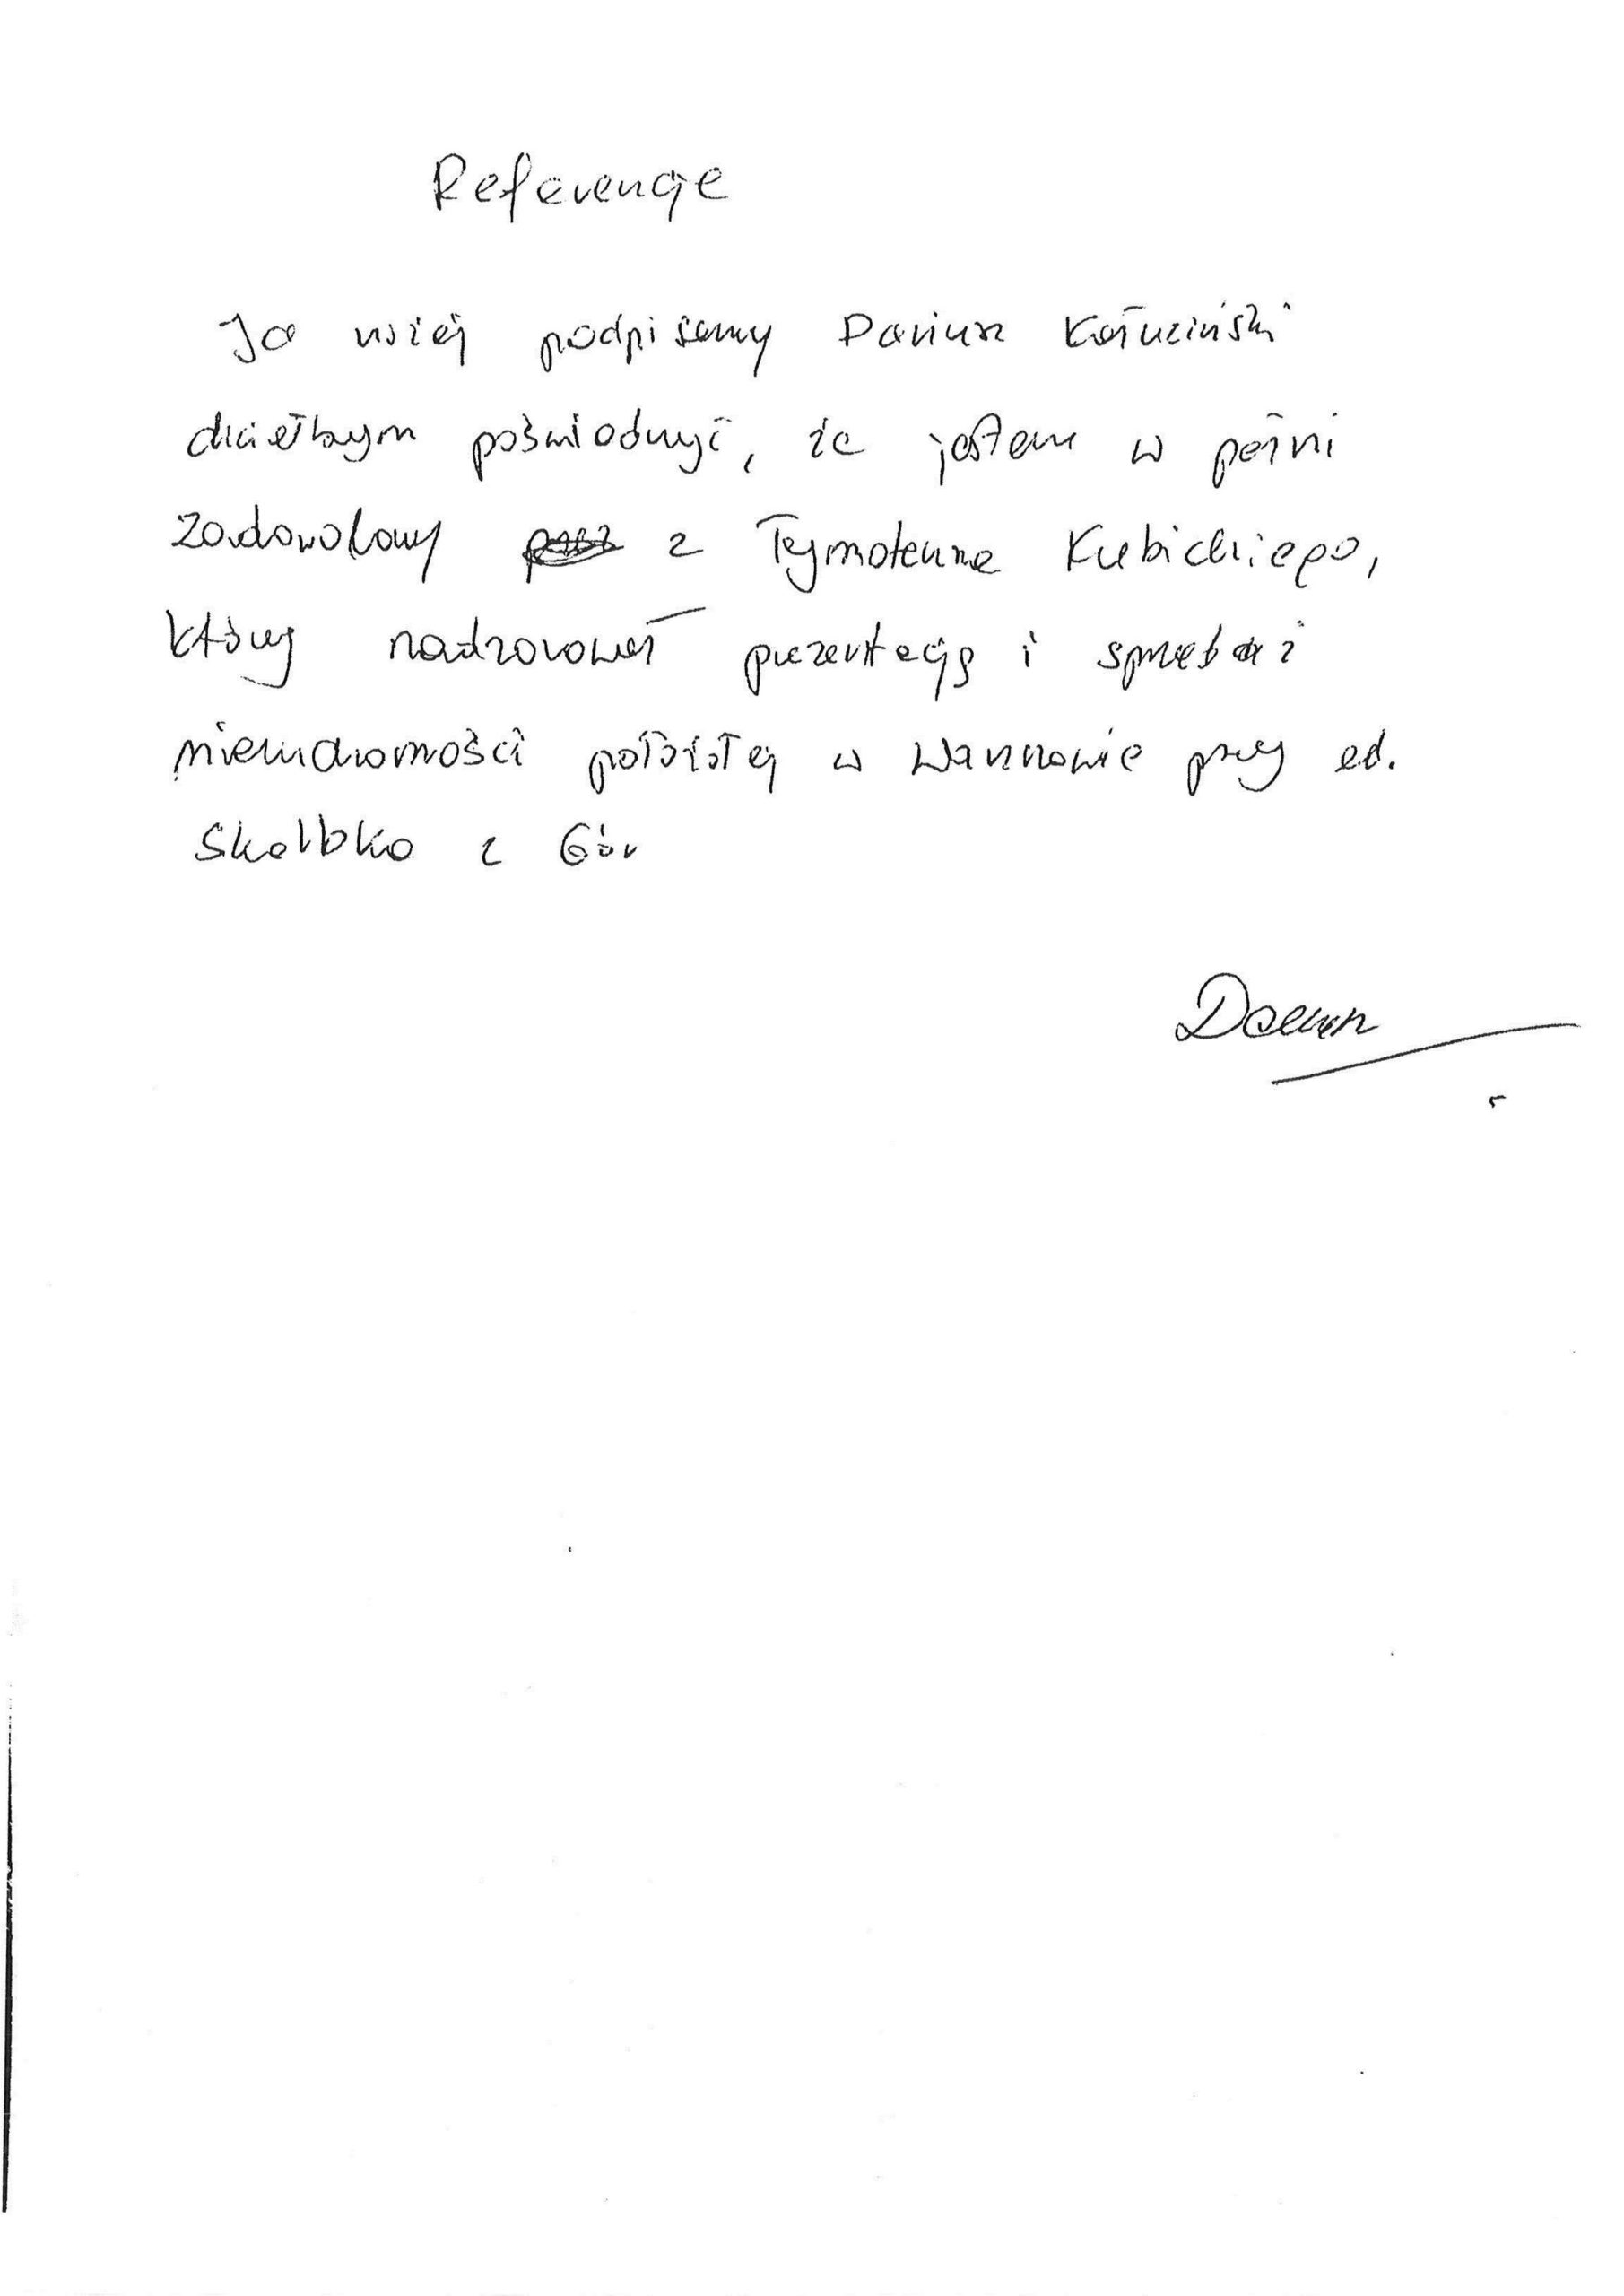 Referencje
Ja niżej podpisany Dariusz Kałuziński
chciałbym poświadczyć, że jestem w pełni
zadowolony z Tymoteusza Kubickiego,
który nadzorował prezentację i sprzedaż
nieruchomości położonej w Warszawie przy ul.
Skarbka z Gór